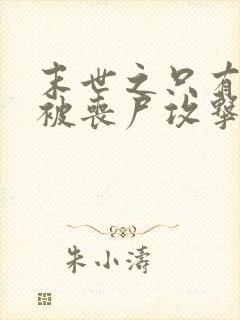 末世之只有
被丧尸攻击
朱小涛